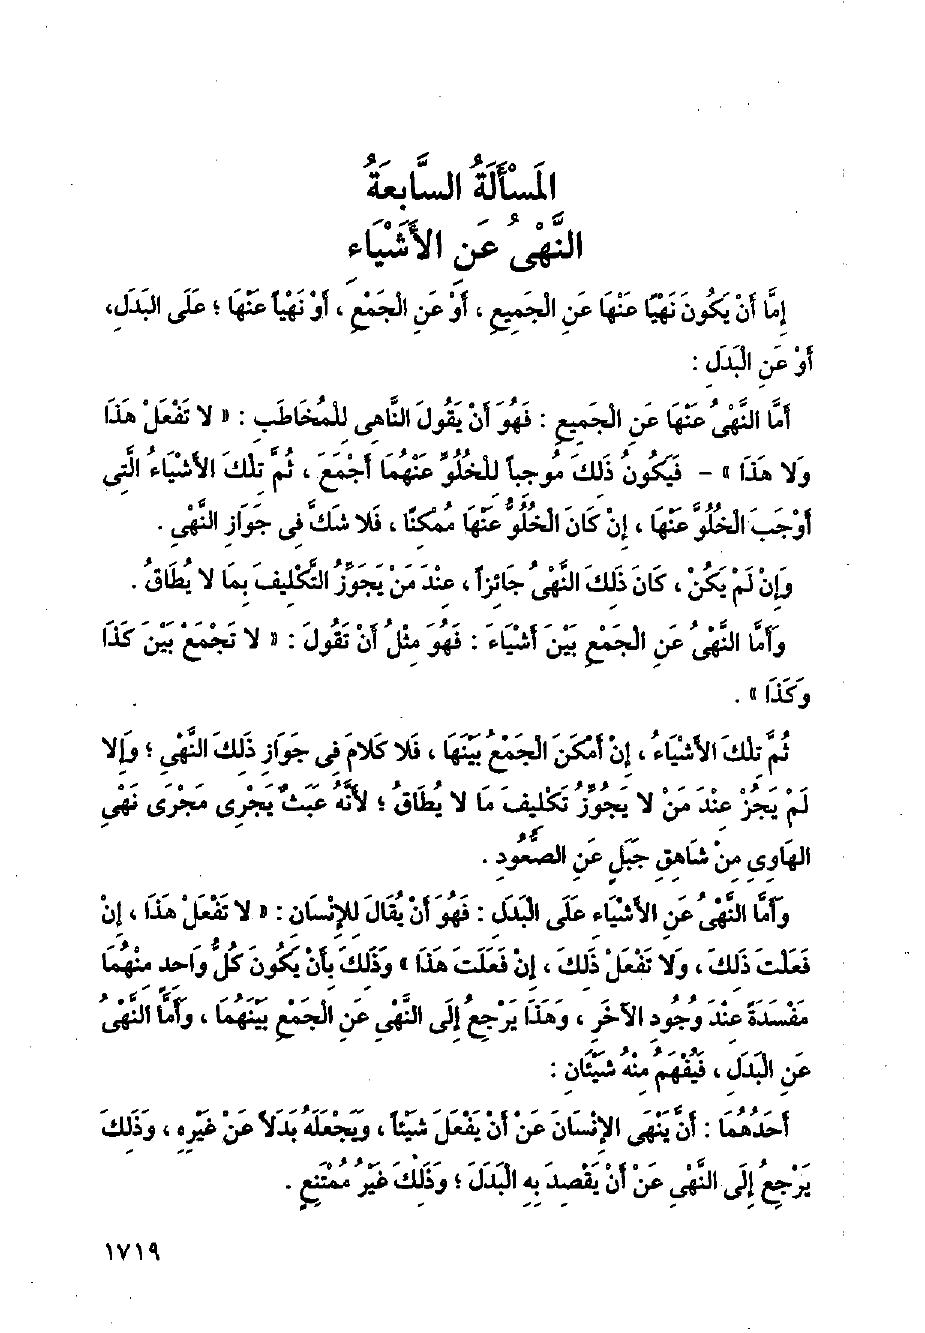 المَسْأَلَةُ السَّابِعَةُ
النَّهْىُ عَنِ الأَشْيَاءِ
إِمَّا أَنْ يَكُونَ نَهْيًا عَنْهَا عَنِ الْجَمِيعِ ، أَوْ عَنِ الْجَمْعِ ، أَوْ نَهْيًا عَنْهَا ؛ عَلَى الْبَدَلِ،
أَوْ عَنِ الْبَدَلِ :
أَمَّا النَّهْىُ عَنْهَا عَنِ الْجَمِيعِ : فَهُوَ أَنْ يَقُولَ النَّاهِى لِلْمُخَاطَبِ : « لا تَفْعَلْ هَذَا
وَلا هَذَا » - فَيَكُونُ ذَلِكَ مُوجِبًا لِلْخُلُوِّ عَنْهُمَا أَجْمَعَ ، ثُمَّ تِلْكَ الأَشْيَاءُ الَّتِى
أَوْجَبَ الْخُلُوَّ عَنْهَا ، إِنْ كَانَ الْخُلُوُّ عَنْهَا مُمْكِنًا ، فَلا شَكَّ فِى جَوَازِ النَّهْىِ .
وَإِنْ لَمْ يَكُنْ ، كَانَ ذَلِكَ النَّهْىُ جَائِزًا ، عِنْدَ مَنْ يُجَوِّزُ التَّكْلِيفَ بِمَا لا يُطَاقُ .
وَأَمَّا النَّهْىُ عَنِ الْجَمْعِ بَيْنَ أَشْيَاءَ : فَهُوَ مِثْلُ أَنْ تَقُولَ : « لا تَجْمَعْ بَيْنَ كَذَا
وَكَذَا » .
ثُمَّ تِلْكَ الأَشْيَاءُ ، إِنْ أَمْكَنَ الْجَمْعُ بَيْنَهَا ، فَلا كَلامَ فِى جَوَازِ ذَلِكَ النَّهْىِ ؛ وَإِلا
لَمْ يَجُزْ عِنْدَ مَنْ لا يُجَوِّزُ تَكْلِيفَ مَا لا يُطَاقُ ؛ لأَنَّهُ عَبَثٌ يَجْرِى مَجْرَى نَهْىِ
الْهَاوِى مِنْ شَاهِقِ جَبَلٍ عَنِ الصُّعُودِ .
وَأَمَّا النَّهْىُ عَنِ الأَشْيَاءِ عَلَى الْبَدَلِ : فَهُوَ أَنْ يُقَالَ لِلإِنْسَانِ : « لا تَفْعَلْ هَذَا ، إِنْ
فَعَلْتَ ذَلِكَ ، وَلا تَفْعَلْ ذَلِكَ ، إِنْ فَعَلْتَ هَذَا » وَذَلِكَ بِأَنْ يَكُونَ كُلُّ وَاحِدٍ مِنْهُمَا
مَفْسَدَةً عِنْدَ وُجُودِ الآخَرِ ، وَهَذَا يَرْجِعُ إِلَى النَّهْىِ عَنِ الْجَمْعِ بَيْنَهُمَا ، وَأَمَّا النَّهْىُ
عَنِ الْبَدَلِ ، فَيُفْهَمُ مِنْهُ شَيْئَانِ :
أَحَدُهُمَا : أَنْ يَنْهَى الإِنْسَانَ عَنْ أَنْ يَفْعَلَ شَيْئًا ، وَيَجْعَلَهُ بَدَلاً عَنْ غَيْرِهِ ، وَذَلِكَ
يَرْجِعُ إِلَى النَّهْىِ عَنْ أَنْ يَقْصِدَ بِهِ الْبَدَلَ ؛ وَذَلِكَ غَيْرُ مُمْتَنِعٍ .
١٧١٩